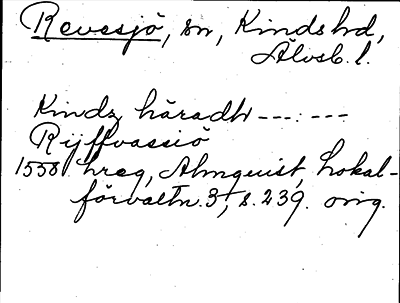 Revesjö, sn, Kinds hd,
Älvsb. l.
Kindz häradh ---:---
Rijffvassiö
1558 hreg, Almquist, Lokal-
förvaltn. 3, s. 239. orig.